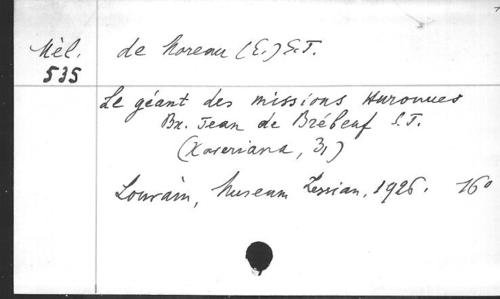 Mèl. de Moreau (E.) S.T.
535
Le géant des missions Huronnes
Bx. Jean de Brébeuf S.T.
(Xaveriana, 31)
Louvain, Museum Lessian, 1926. 16°